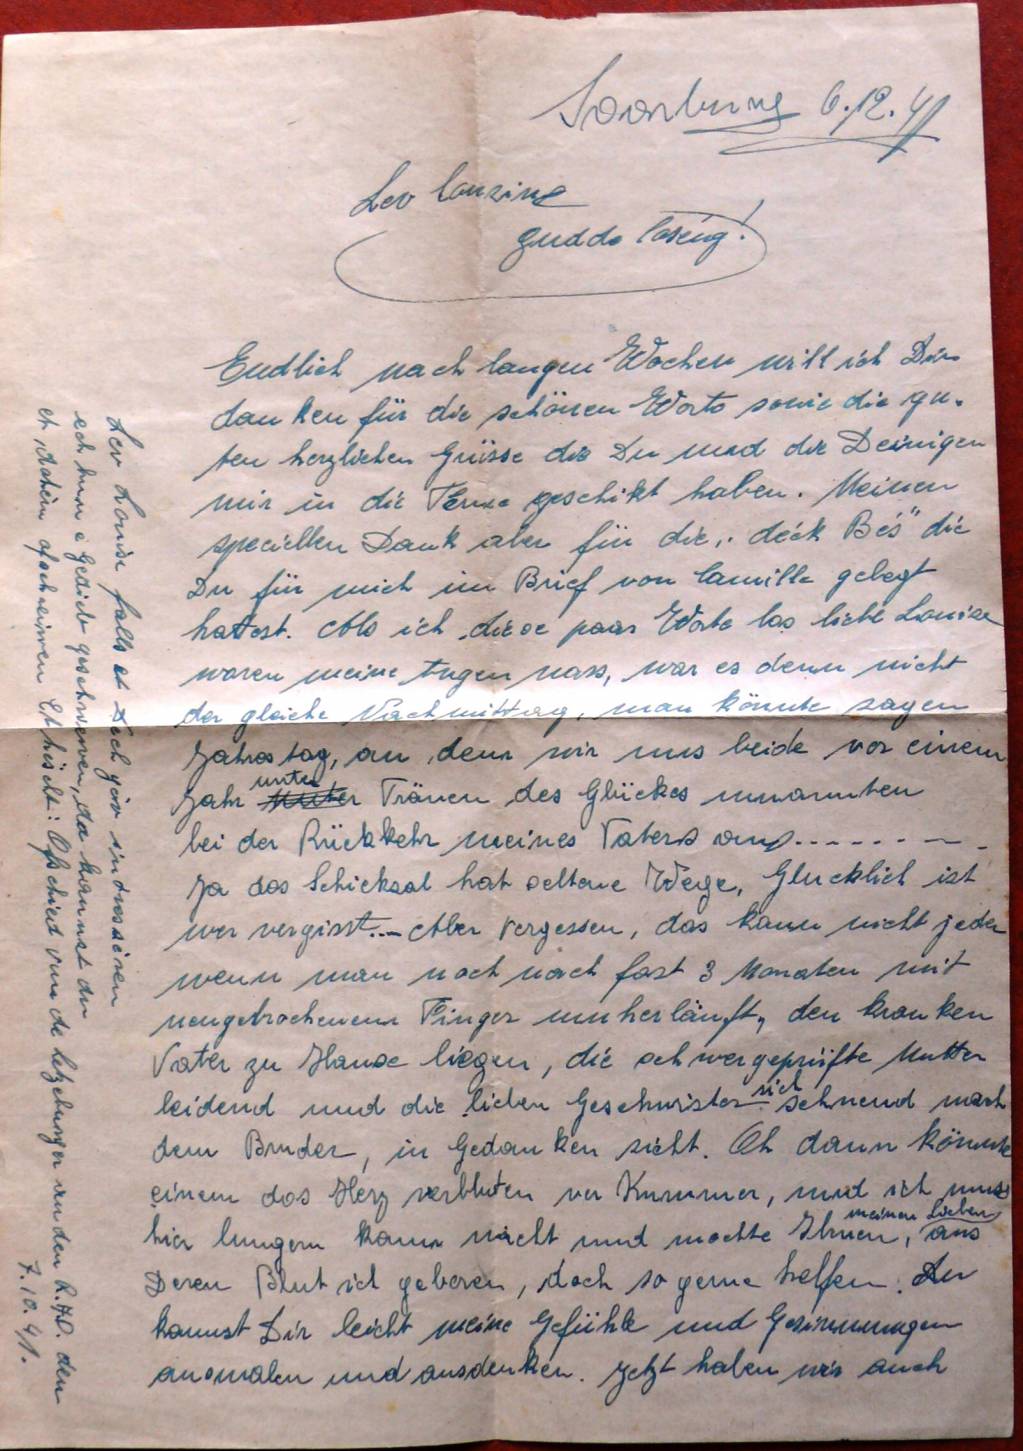 Saarburg 6.12.41
Lev Lousing
gudde Cosèng!
Endlich nach langen Wochen will ich Dir
danken für die schönen Worte sowie die gu-
ten herzlichen Grüsse die Du und die Deinigen
mir in die Ferne geschikt haben. Meinen
speciellen Dank aber für die „déck Bés" die
Du für mich im Brief von Camille gelegt
hattest. Als ich diese paar Worte las liebe Louise
waren meine Augen nass, war es denn nicht
der gleiche Nachmittag, man könnte sagen
Jahrestag, an dem wir uns beide vor einem
Jahr unter Tränen des Glückes umarmten
bei der Rückkehr meines Vaters aus.........
Ja das Schicksal hat seltene Wege, Glücklich ist
wer vergisst... Aber vergessen, das kann nicht jeder
wenn man noch nach fast 3 Monaten mit
neugebrochenem Finger umherläuft, den kranken
Vater zu Hause liegen, die schwergeprüfte Mutter
leidend und die lieben Geschwister sich sehnend nach
dem Bruder, in Gedanken sieht. Oh dann könnte
einem das Herz verbluten vor Kummer, und ich muss
hier lungern kann nicht und möchte Ihnen, meinen Lieben, aus
Deren Blut ich geboren, doch so gerne helfen. Du
kannst Dir leicht meine Gefühle und Gesinnungen
ausmalen und ausdenken. Jetzt haben wir auch
Lev Louise falls et Dech géiv indresséiren
ech hun e Gedicht geschriwen, da kannst du
et dohém ofschreiwen. Et héscht: Ofschied vum de letzeburger an den R.A.D. den
7.10.41.